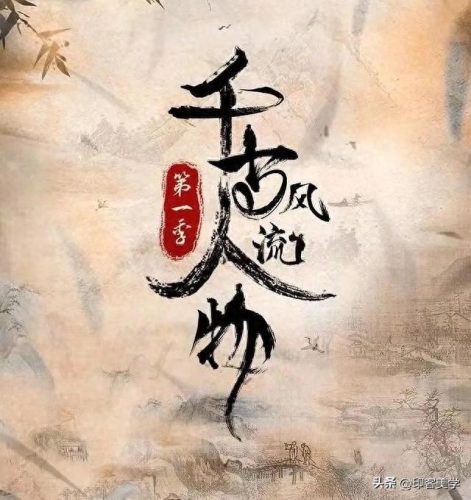 千古
风流
人物
第一季
头条 @印客美学